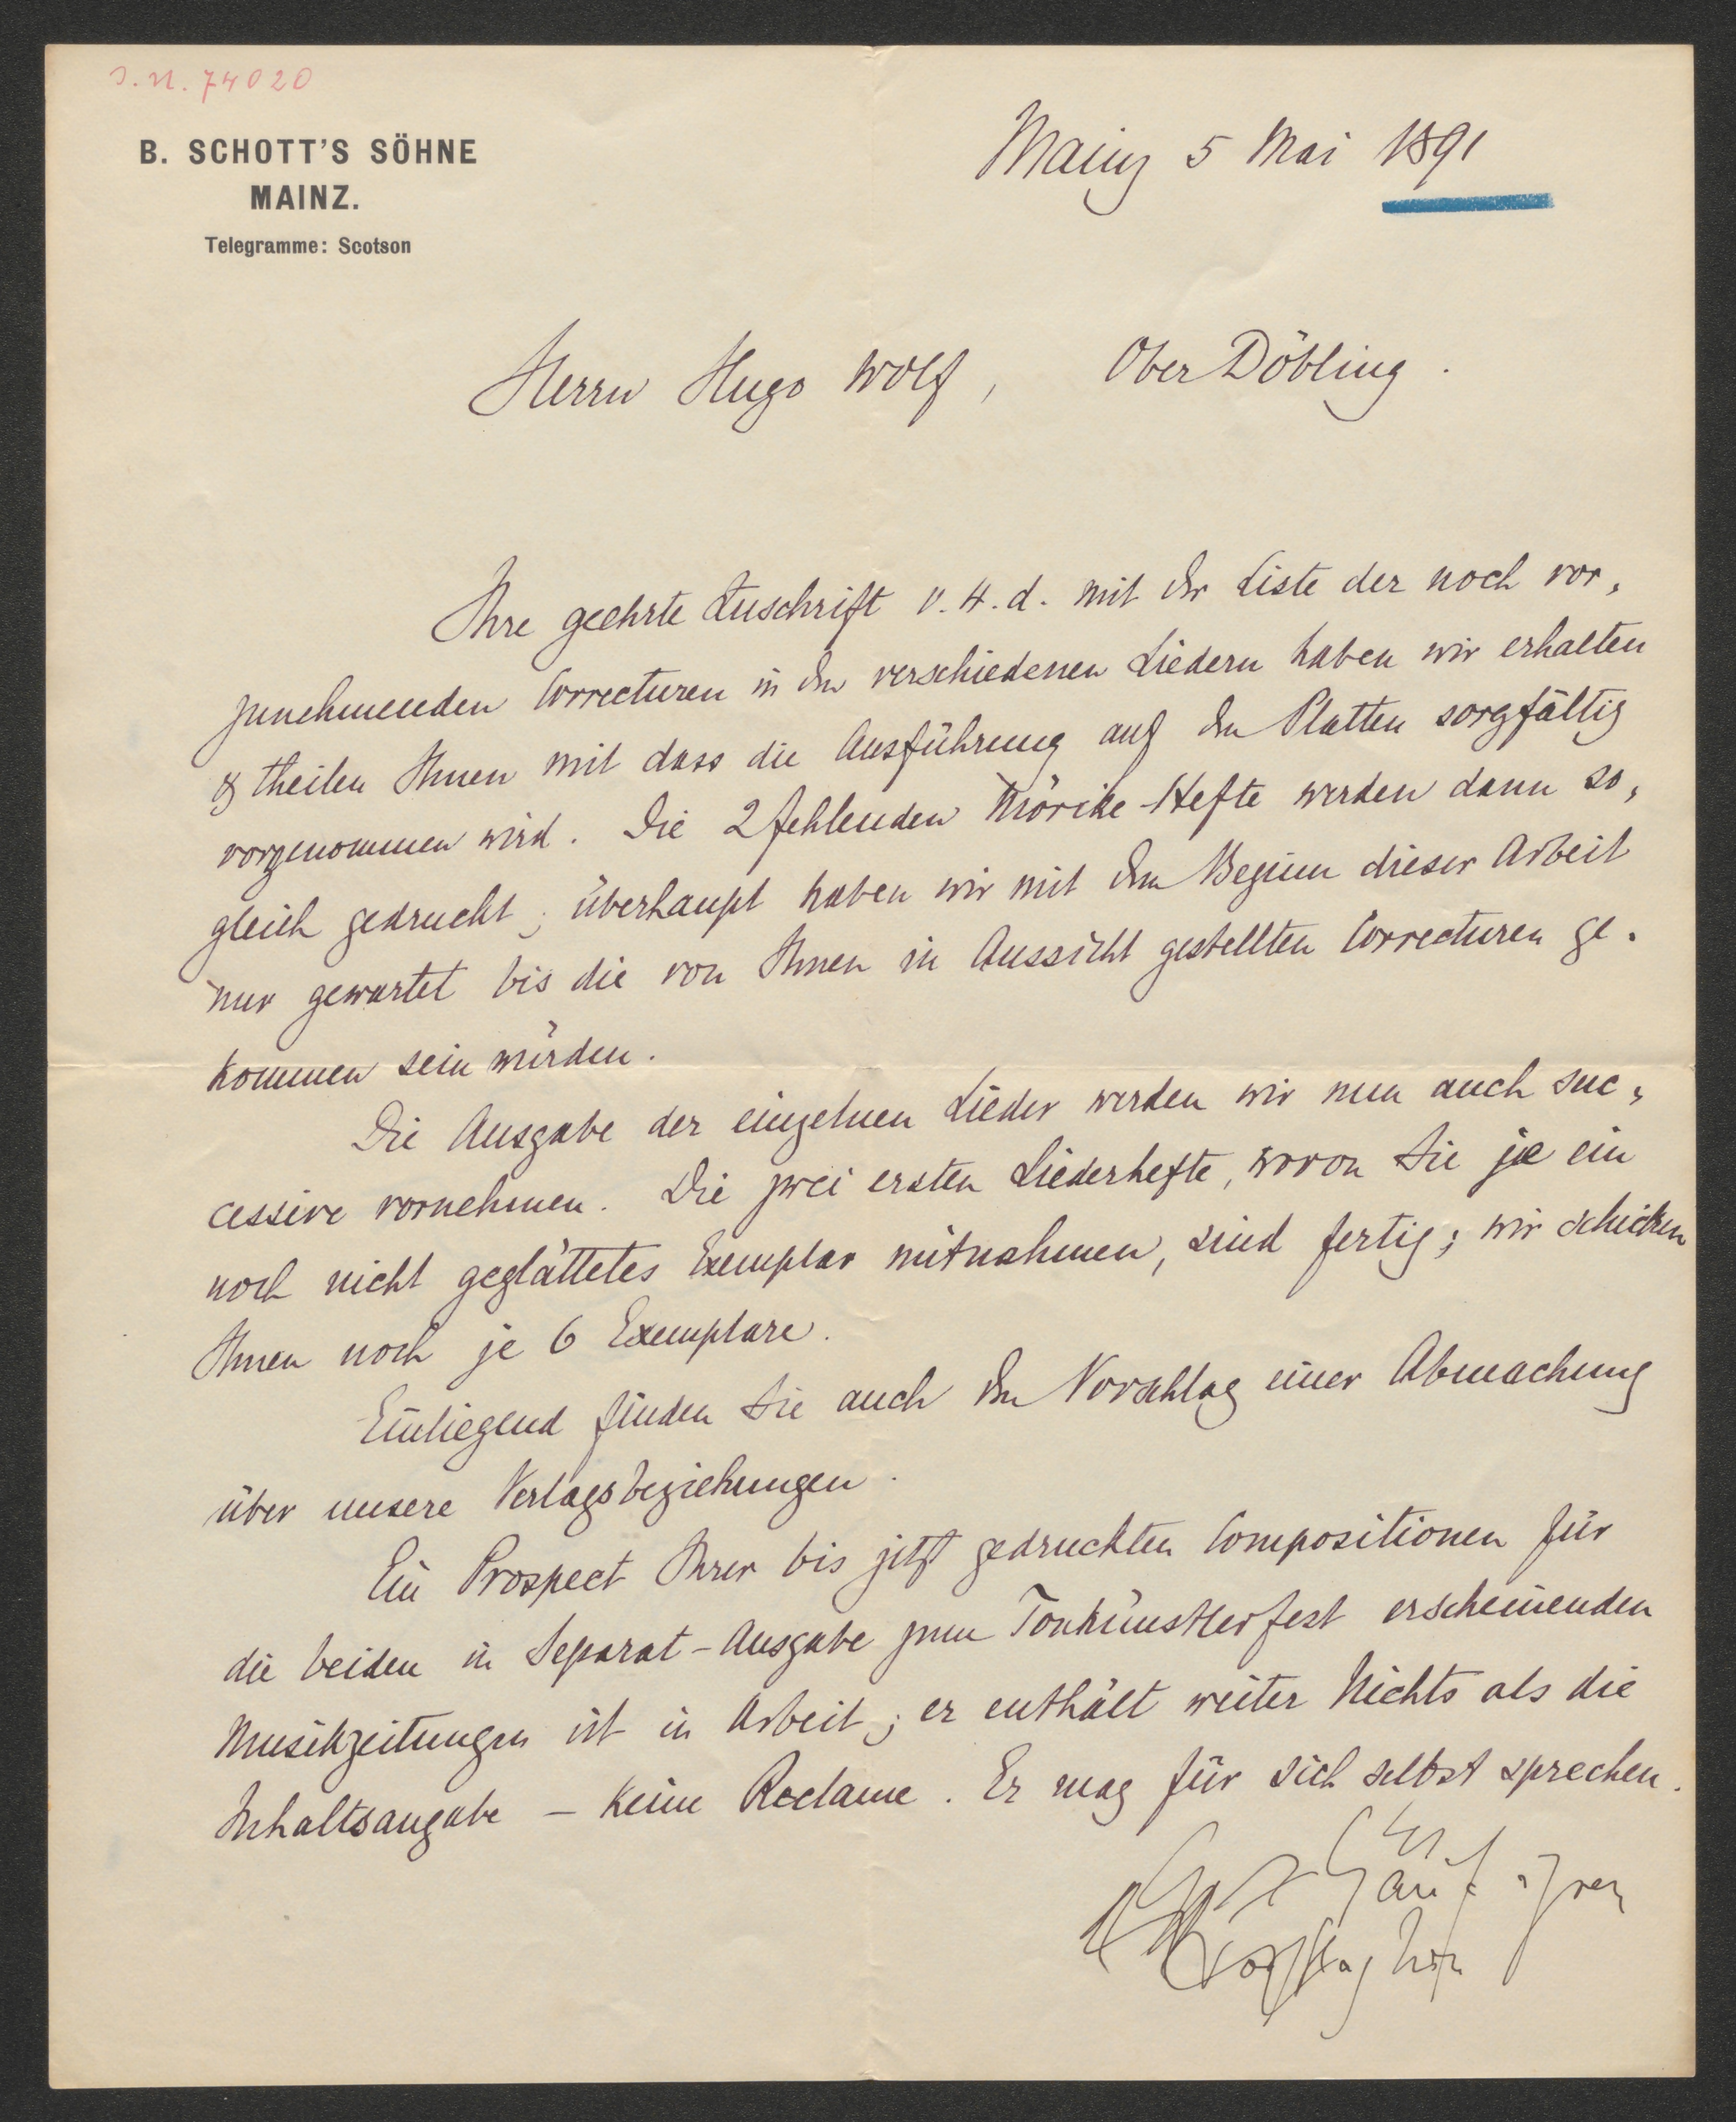 I.N. 74020
B. SCHOTT'S SÖHNE
MAINZ.
Telegramme: Scotson
Mainz 5 Mai 1891
Herrn Hugo Wolf, Ober Döbling.
Ihre geehrte Zuschrift v. 4. d. mit der Liste der noch vor-
zunehmenden Correcturen in den verschiedenen Liedern haben wir erhalten
& theilen Ihnen mit dass die Ausführung auf den Platten sorgfältig
vorgenommen wird. Die 2 fehlenden Mörike-Hefte werden dann so-
gleich gedruckt; überhaupt haben wir mit dem Beginn dieser Arbeit
nur gewartet bis die von Ihnen in Aussicht gestellten Correcturen ge-
kommen sein würden.
Die Ausgabe der einzelnen Lieder werden wir nun auch suc-
cessive vornehmen. Die zwei ersten Liederhefte, wovon Sie je ein
noch nicht geglättetes Exemplar mitnahmen, sind fertig; wir schicken
Ihnen noch je 6 Exemplare.
Einliegend finden Sie auch den Vorschlag einer Abmachung
über unsere Verlagsbeziehungen.
Ein Prospect Ihrer bis jetzt gedruckten Compositionen für
die beiden in Separat-Ausgabe zum Tonkünstlerfest erscheinenden
Musikzeitungen ist in Arbeit; er enthält weiter Nichts als die
Inhaltsangabe – keine Reclame. Er mag für sich selbst sprechen.